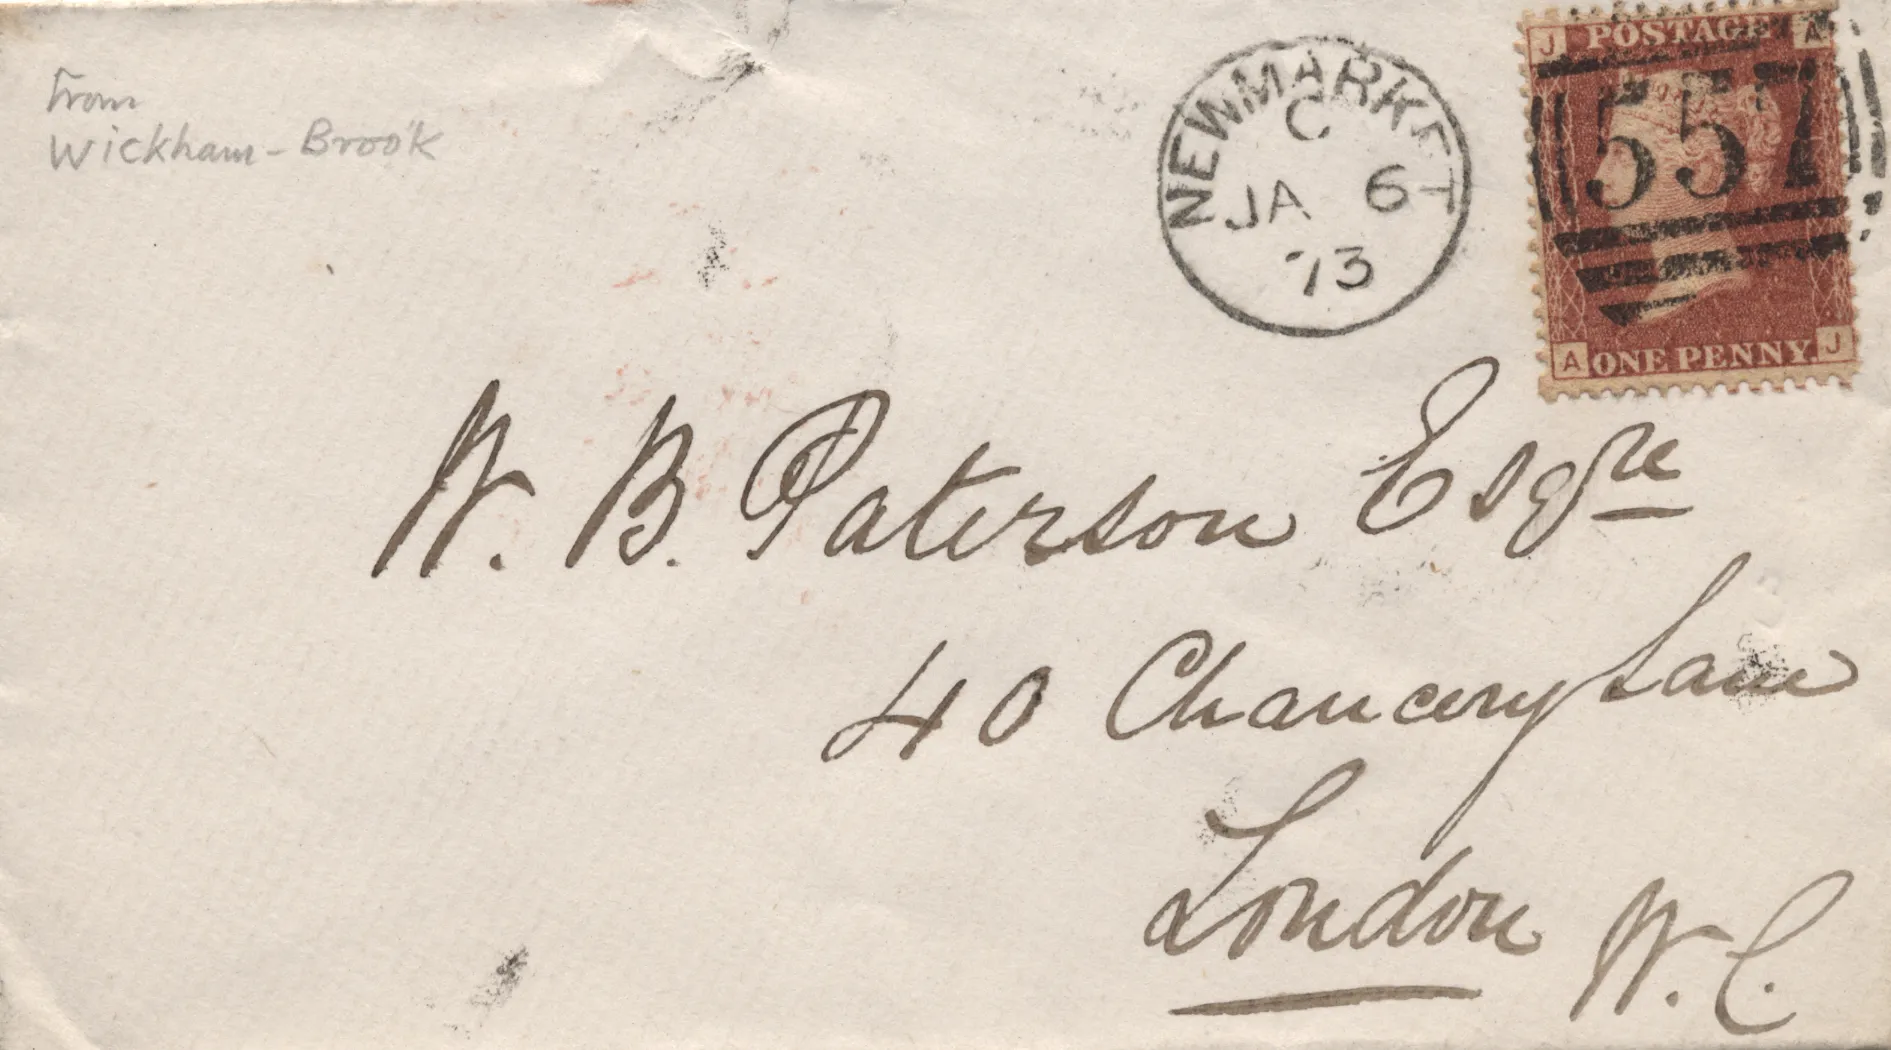 From
Wickham-Brook
NEWMARKET
C
JA 6
73
J POSTAGE A
557
A ONE PENNY J
W. B. Paterson Esqre
40 Chancery Lane
London W.C.